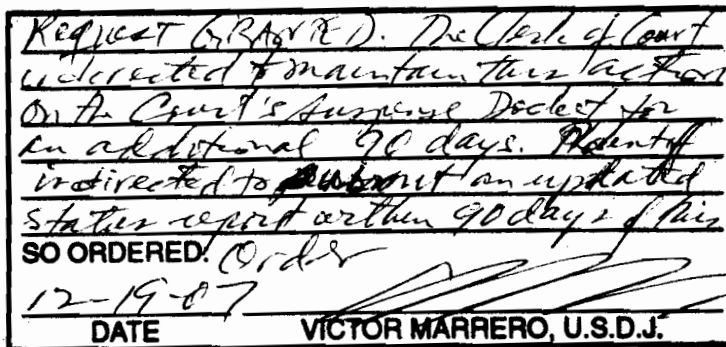 Request GRANTED. The Clerk of Court
is directed to maintain this action
on the Court's Suspense Docket for
an additional 90 days. Plaintiff
is directed to submit an updated
status report within 90 days of this
SO ORDERED: Order
12-19-07
DATE VICTOR MARRERO, U.S.D.J.